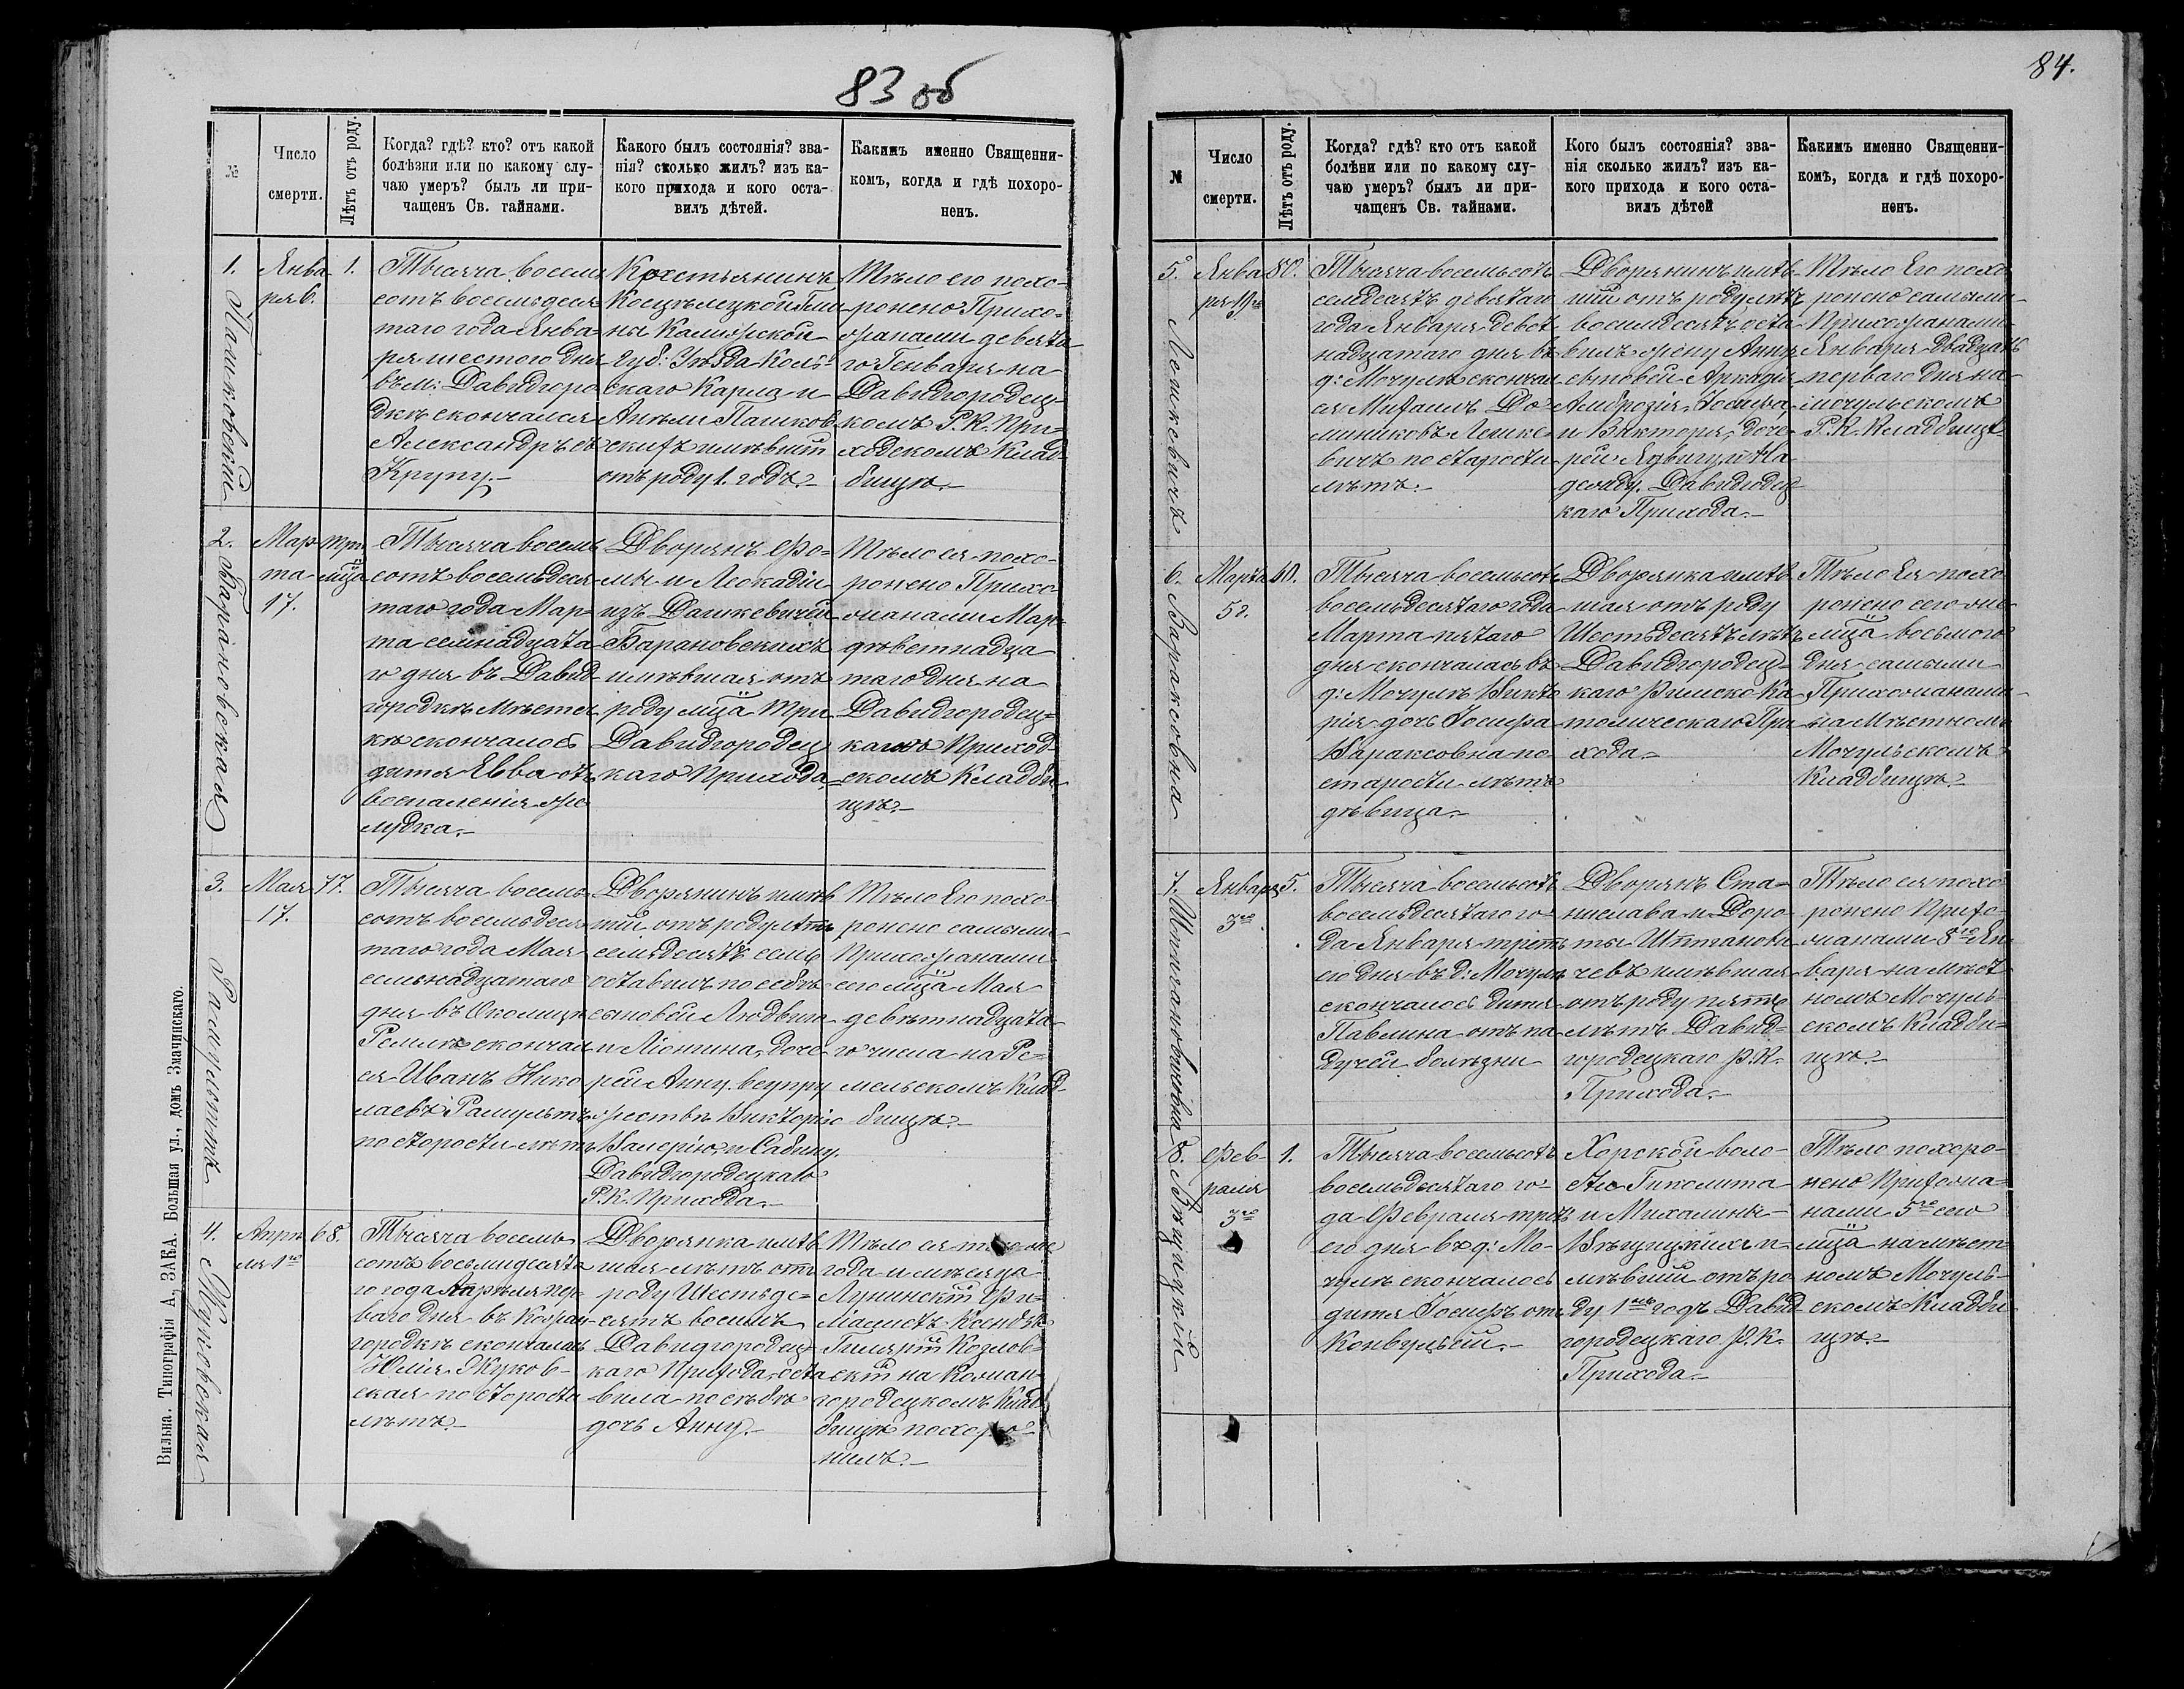 83 об
№
Число
смерти.
Лѣтъ отъ роду.
Когда? гдѣ? кто? отъ какой
болѣзни или по какому слу-
чаю умеръ? былъ ли при-
чащенъ Св. тайнами.
Какого былъ состоянія? зва-
нія? сколько жилъ? изъ ка-
кого прихода и кого оста-
вилъ дѣтей.
Какимъ именно Священни-
комъ, когда и гдѣ похоро-
ненъ.
1.
Пашковскій
Янва
ря 6.
1.
Тысяча восемь
сотъ восемьдеся
таго года Янва-
ря шестого дня
въ м: Давидгоро
дкѣ скончался
Александръ съ
Крупу.-
Крестьянинъ
Гми-
ны Калишской
Губ: Уѣзда Коль-
скаго Карла и
Анели Пашков
скихъ имѣвшій
отъ роду 1. годъ.-
Тѣло его похо-
ронено Прихо-
жанами девята
го Генваря на
Давидгородец-
комъ Р. К. При-
ходскомъ Клад-
бищѣ.-
2.
Барановская
Мар-
та
17.
три
мца
Тысяча восемь
сотъ восемьдеся
таго года Мар-
та семнадцата
го дня въ Давид
городкѣ Мѣстеч
кѣ скончалось
дитя Евва отъ
воспаленія же
лудка.-
Дворянъ Фо-
мы и Леокадіи
изъ Дашкевичей
Барановскихъ
имѣвшая отъ
роду мца три
Давидгородец
каго Прихода.-
Тѣло ея похо-
ронено Прихо
жанами Мар-
девятнадца
таго дня на
Давидгородец-
комъ Приход
скомъ Кладби
щѣ.-
3.
Рамультъ
Мая
17.
77.
Тысяча восемь
сотъ восемьдеся
таго года Мая
семьнадцатаго
дня въ Околицѣ
Ремлѣ скончал
ся Иванъ Нико
лаевъ Рамультъ
по старости лѣтъ
Дворянинъ имѣв
шій отъ роду лѣтъ
семьдесятъ семь
оставилъ по себѣ
сыновей Людвига
и Ліонина, доче
рей Анну. въ супру
жествѣ Викторію
Валерію и Сабину.
Давидгородецкаго
Р. К. Прихода.-
Тѣло Его похо
ронено самыми
Прихожанами
сего мца Мая
девятнадцата
го числа на Ре-
мельскомъ Клад-
бищѣ.-
4.
Жуковская
Апрѣ
ля 1го
68.
Тысяча восемь
сотъ восьмидесята
го года Апрѣля пер
ваго дня въ Кожан
городкѣ скончалась
Юлія Жуков-
ская по старости
лѣтъ.-
Дворянка имѣв
шая лѣтъ отъ
роду Шестьде-
сятъ восемь
Давидгородец-
каго Прихода, оста
вила по себѣ
дочь Анну.-
Тѣло ея того же
года и мѣсяца
Лунинскій Фи-
ліалистъ Ксендзъ
Гиларій Козлов-
скій на Кожан-
городецкомъ Клад
бищѣ похоро-
нилъ.-
Вильна. Типографія А. ЗАКА. Большая ул., домъ Знамѣнскаго.
84.
№
Число
смерти.
Лѣтъ отъ роду.
Когда? гдѣ? кто отъ какой
болѣзни или по какому слу-
чаю умеръ? былъ ли при-
чащенъ Св. тайнами.
Кого былъ состоянія? зва-
нія сколько жилъ? изъ ка-
кого прихода и кого оста-
вилъ дѣтей
Какимъ именно Священни-
комъ, когда и гдѣ похоро-
ненъ.
5.
Лешкевичъ
Янва
ря 19го
80.
Тысяча восемьсотъ
семдесятъ девятаго
года Января девят
надцатаго дня въ
д: Мочулѣ скончал
ся Михаилъ До-
миниковъ Лешке-
вичъ по старости
лѣтъ.-
Дворянинъ имѣв-
шій отъ роду лѣтъ
восемдесятъ оста
вилъ жену Анну
сыновей Аркадія
Амброзія, Іосифа
и Виктора, доче
рей Ядвигу и На-
дежду. Давидгодец
каго Прихода.-
Тѣло Его похо
ронено самыми
Прихожанами
Января двадцать
перваго дня на
мочульскомъ
Р. К. Кладбищѣ
6.
Вараксовна
Марта
5 г.
60.
Тысяча восемьсотъ
восемьдесятаго года
Марта пятаго
дня скончалась въ
д: Мочулѣ Викто
рія дочь Іосифа
Вараксовна по
старости лѣтъ
дѣвица.-
Дворянка имѣв
шая отъ роду
Шестьдесятъ лѣтъ
Давидгородец-
каго Римско Ка
толическаго При
хода.-
Тѣло Ея похо
ронено сего же
мца восьмого
дня самыми
Прихожанами
на Мѣстномъ
Мочульскомъ
Кладбищѣ.-
7.
Января
3го
5.
Тысяча восемьсотъ
восемьдесятаго го-
да Января треть
его дня въ д: Мочулѣ
скончалось дитя
Павлина отъ па
дучей болѣзни
Дворянъ Ста-
нислава и Доро-
ты
чевъ имѣвшая
отъ роду пять
лѣтъ Давид-
городецкаго Р. К.
Прихода.-
Тѣло ея похо
ронено Прихо-
жанами 8го Ян
варя на мѣст
номъ Мочуль-
скомъ Кладби-
щѣ.-
8.
Фев-
раля
3го
1.
Тысяча восемьсотъ
восемьдесятаго го-
да Февраля треть
его дня въ д: Мо-
чулѣ скончалось
дитя Іосифъ отъ
Конвульсіи.-
Хорской воло-
сти Гиполита
и Михалины
и-
мѣвшій отъ ро
ду 1нъ годъ Давид
городецкаго Р. К.
Прихода.-
Тѣло похоро-
нено Прихожа-
нами 5го сего
мца на мѣст-
номъ Мочуль-
скомъ Кладби
щѣ.-